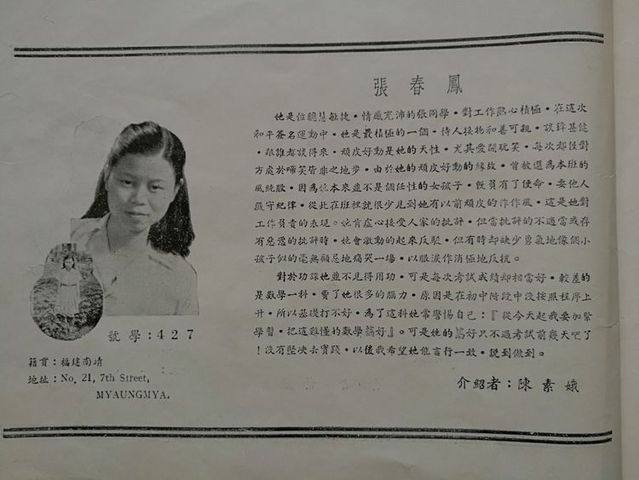 張春鳳
她是位聰慧敏捷・情感充沛的張同學・對工作熱心積極・在這次
和平簽名運動中・她是最積極的一個・待人接物和善可親・談鋒甚健
・跟誰都談得來・頑皮好動是她的天性・尤其愛開玩笑・每次都使對
方處於啼笑皆非之地步・由於她的頑皮好動的緣故・曾被選為本班的
風紀股・因為她本來並不是個任性的女孩子・既負有了使命・要他人
嚴守紀律・從此在班裡就很少見到她有以前頑皮的作風・這是她對
工作負責的表現。她肯虛心接受人家的批評・但當批評的不適當或存
有惡意的批評時・她會激動的起來反駁・但有時却缺少勇氣地像個小
孩子似的毫無顧忌地痛哭一場・以眼淚作消極地反抗。
對於功課她並不見得用功・可是每次考試成績却相當好・較差的
是數學一科・費了她很多的腦力・原因是在初中階段中沒按照程序上
升・所以基礎打不好・為了這科她常警惕自己：『從今天起我要加緊
學習・把這難懂的數學搞好』。可是她的搞好只不過考試前幾天吧了
！沒有堅決去實踐・以後我希望她能言行一致・說到做到。
介紹者：陳素娥
號學：427
籍貫：福建南靖
地址：No. 21, 7th Street,
MYAUNGMYA.